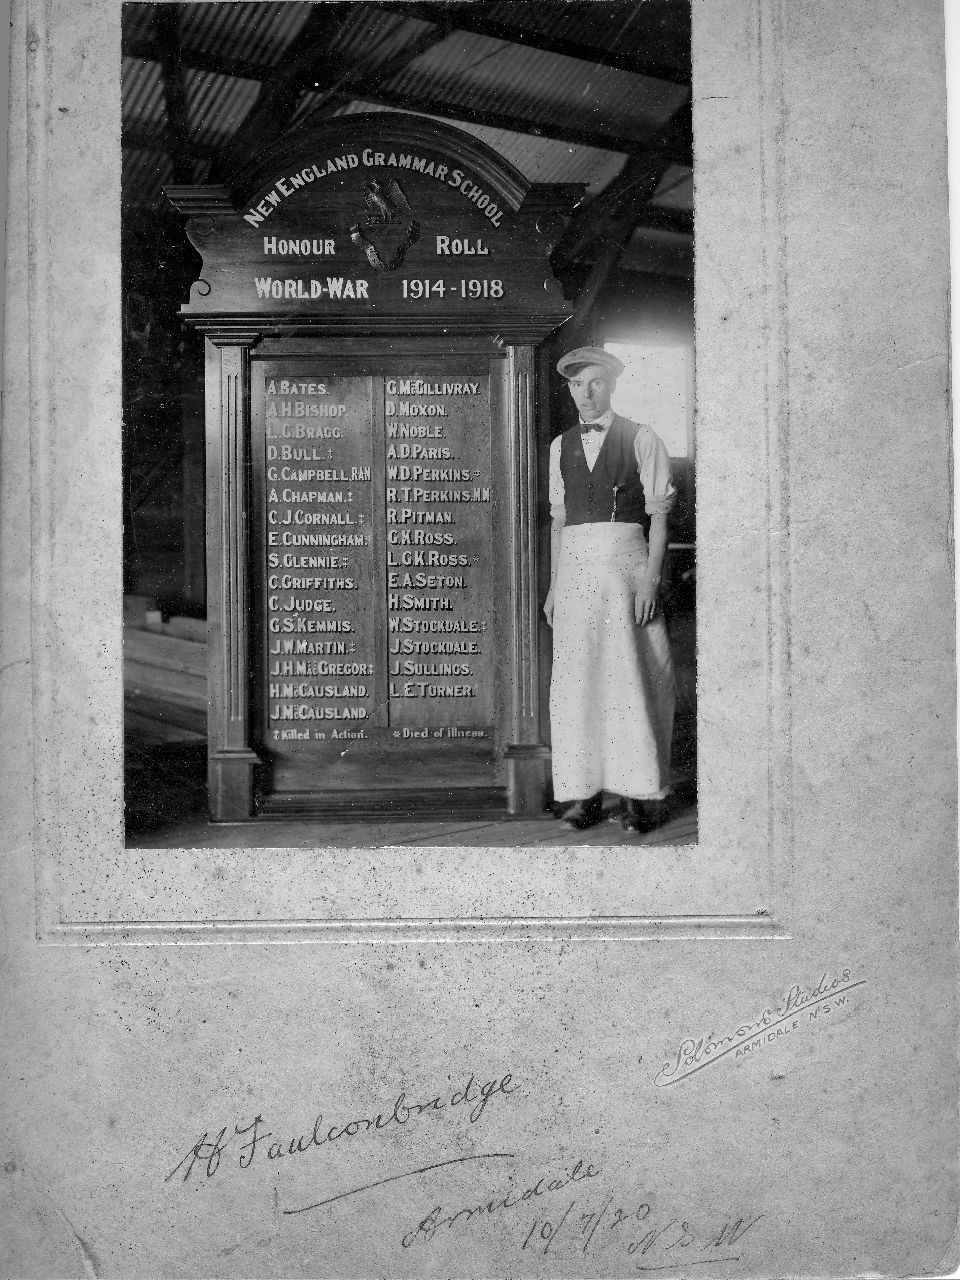 NEW ENGLAND GRAMMAR SCHOOL
HONOUR ROLL
WORLD-WAR 1914-1918
A.BATES.
A.H.BISHOP.
L.C.BRAGG.
D.BULL.‡
G.CAMPBELL,RAN
A.CHAPMAN.‡
C.J.CORNALL.‡
E.CUNNINGHAM.*
S.GLENNIE.‡
C.GRIFFITHS.
C.JUDGE.
G.S.KEMMIS.
J.W.MARTIN.‡
J.H.MACGREGOR‡
H.McCAUSLAND.
J.McCAUSLAND.
‡Killed in Action.
G.McGILLIVRAY.
D.MOXON.
W.NOBLE.
A.D.PARIS.
W.D.PERKINS.*
R.T.PERKINS.M.M
R.PITMAN.
G.K.ROSS.
L.G.K.ROSS.*
E.A.SETON.
H.SMITH.
W.STOCKDALE.‡
J.STOCKDALE.
J.SULLINGS.
L.E.TURNER.
*Died of illness.
Solomons Studios
ARMIDALE N.S.W.
H Faulconbridge
Armidale
10/7/20
N S W